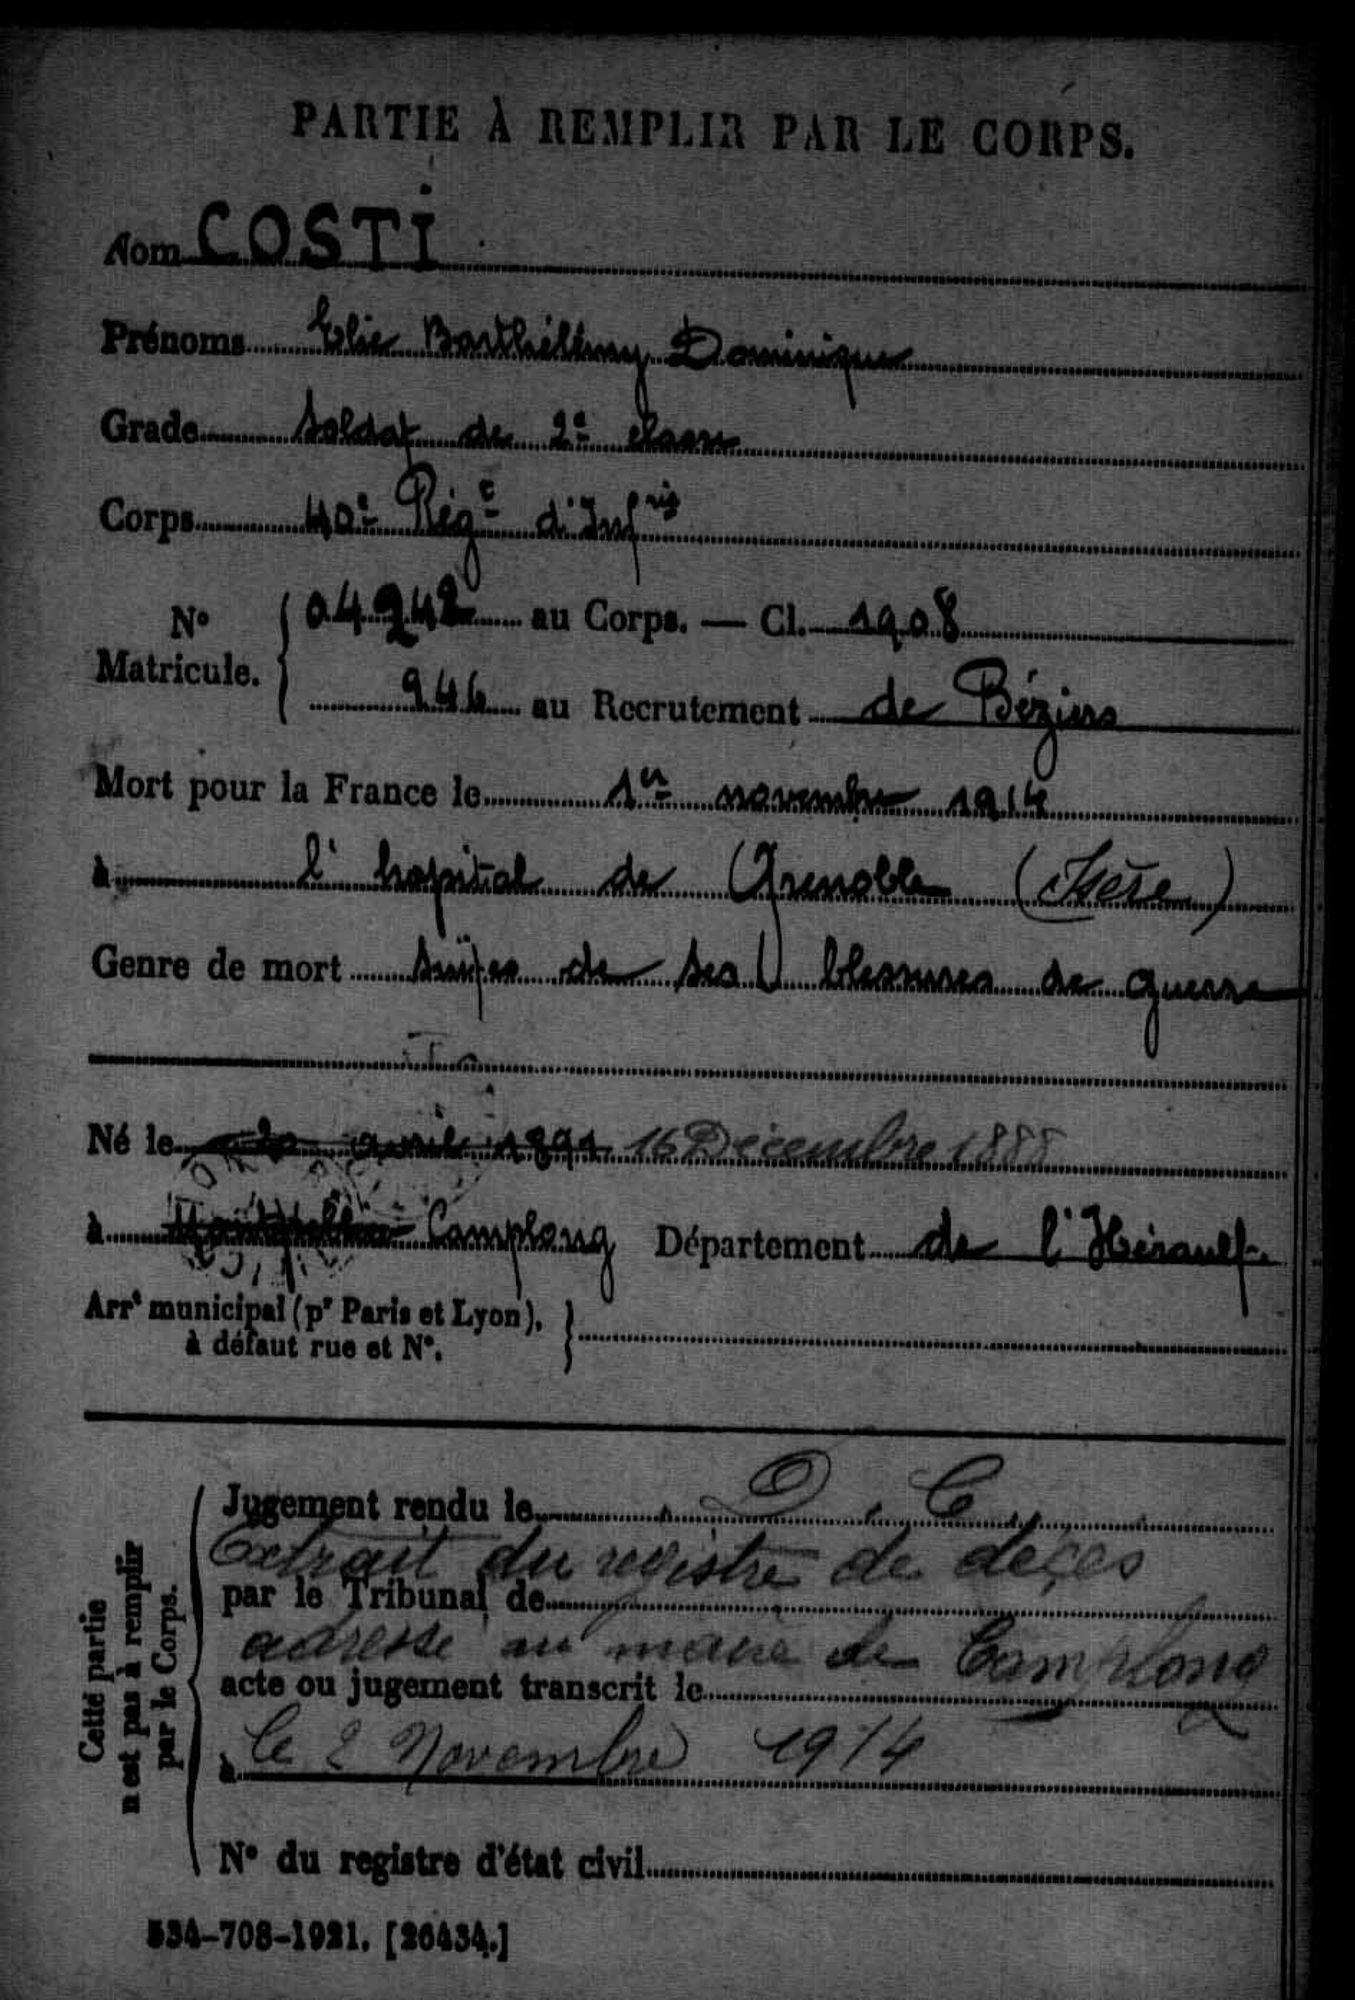 PARTIE À REMPLIR PAR LE CORPS.
Nom COSTI
Prénoms Elie Barthélémy Dominique
Grade Soldat de 2e classe
Corps 40e Régt d'Infrie
No Matricule. 04242 au Corps. — Cl. 1908
946 au Recrutement de Béziers
Mort pour la France le 1er novembre 1914
à l'hopital de Grenoble (Isère)
Genre de mort suites de ses blessures de guerre
Né le avril 1891 16 Décembre 1888
à Camplong Département de l'Hérault
Arrt municipal (pr Paris et Lyon), à défaut rue et No.
Cette partie n'est pas à remplir par le Corps.
Jugement rendu le D. C.
Extrait du registre de décès
par le Tribunal de
adressé au maire de Camplong
acte ou jugement transcrit le
à le 2 Novembre 1914
No du registre d'état civil
534-708-1921. [26434.]